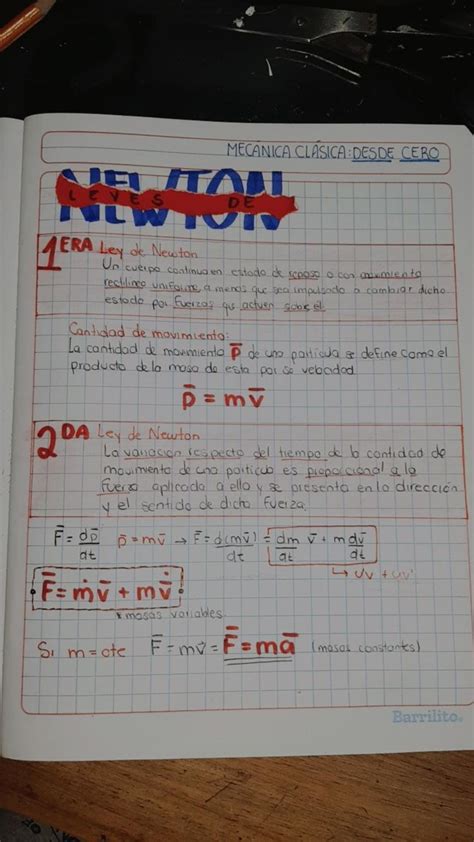 MECÁNICA CLÁSICA: DESDE CERO
LEYES DE
NEWTON
1ERA Ley de Newton
Un cuerpo continua en estado de reposo o con movimiento
rectilineo uniforme, a menos que sea impulsado a cambiar dicho
estado por fuerzas que actuen sobre el.
Cantidad de movimiento:
La cantidad de movimiento p̄ de una particula se define como el
producto de la masa de esta por su velocidad
p̄ = m v̄
2DA Ley de Newton
La variación respecto del tiempo de la cantidad de
movimiento de una particula es proporcional a la
fuerza aplicada a ella y se presenta en la dirección
y el sentido de dicha fuerza.
F̄ = dp̄/dt p̄ = mv̄ → F̄ = d(mv̄)/dt = dm/dt v̄ + m dv̄/dt
↳ u'v + uv'
F̄ = ṁv̄ + mv̄̇
*masas variables
Si m = cte F̄ = mv̇ = F̄ = mā (masas constantes)
Barrilito